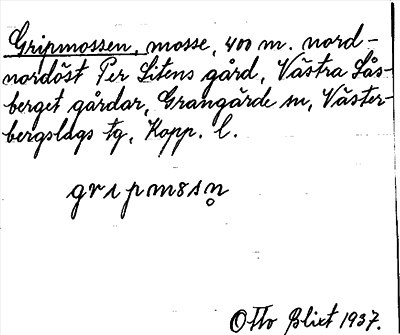 Gripmossen, mosse, 400 m. nord-
nordöst Per Litens gård, Västra Lås-
berget gårdar, Grangärde sn, Väster-
bergslags tg, Kopp. l.
gripm8sn̥
Otto Blixt 1937.